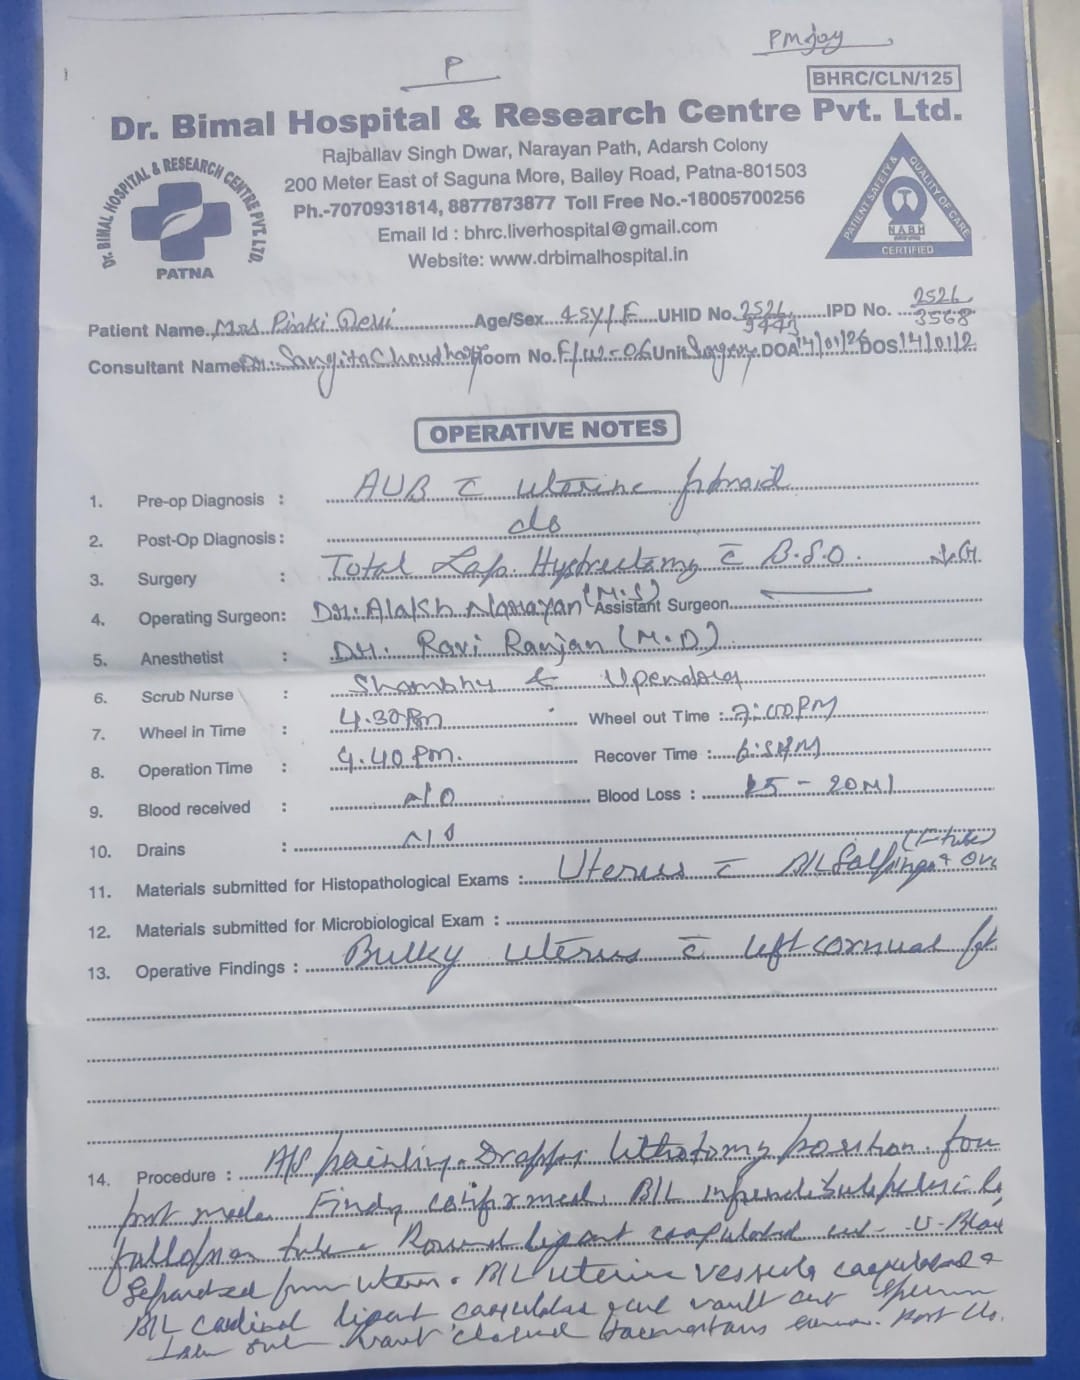 PMjoy
P
BHRC/CLN/125
Dr. Bimal Hospital & Research Centre Pvt. Ltd.
Rajballav Singh Dwar, Narayan Path, Adarsh Colony
200 Meter East of Saguna More, Bailey Road, Patna-801503
Ph.-7070931814, 8877873877 Toll Free No.-18005700256
Email Id : bhrc.liverhospital@gmail.com
Website: www.drbimalhospital.in
Dr. BIMAL HOSPITAL & RESEARCH CENTRE PVT. LTD.
PATNA
PATIENT SAFETY & QUALITY OF CARE
NABH
CERTIFIED
Patient Name. Mrs Pinki Devi Age/Sex 45Y/F UHID No. 2526/ IPD No. 2526/3568
Consultant Name Dr. Sangita Choudhary Room No. F/W-06 Unit Surgery DOA 14/01/26 DOS 14/01/2
OPERATIVE NOTES
1. Pre-op Diagnosis : AUB c̄ uterine fibroid
2. Post-Op Diagnosis : do
3. Surgery : Total Lap. Hystrectomy c̄ B.S.O.
4. Operating Surgeon: Dr. Alakh Narayan (M.S) Assistant Surgeon
5. Anesthetist : Dr. Ravi Ranjan (M.D)
6. Scrub Nurse : Shambhu & Upendra
7. Wheel in Time : 4.30 Pm Wheel out Time : 7:00 PM
8. Operation Time : 4.40 Pm. Recover Time :
9. Blood received : N/O Blood Loss : 15 - 20 Ml
10. Drains : N/O
11. Materials submitted for Histopathological Exams : Uterus c̄ B/L Salpingo + Ova (F-tube)
12. Materials submitted for Microbiological Exam :
13. Operative Findings : Bulky uterus c̄ left cornual
14. Procedure : A/S painting. Draping lithotomy position. four
port made. Findg confirmed. B/L
fallopian tube Round ligant coagulated
Separated from uterus. B/L uterine vessels coagulated &
B/L cardinal ligant vault cut
vault closed haemostasis